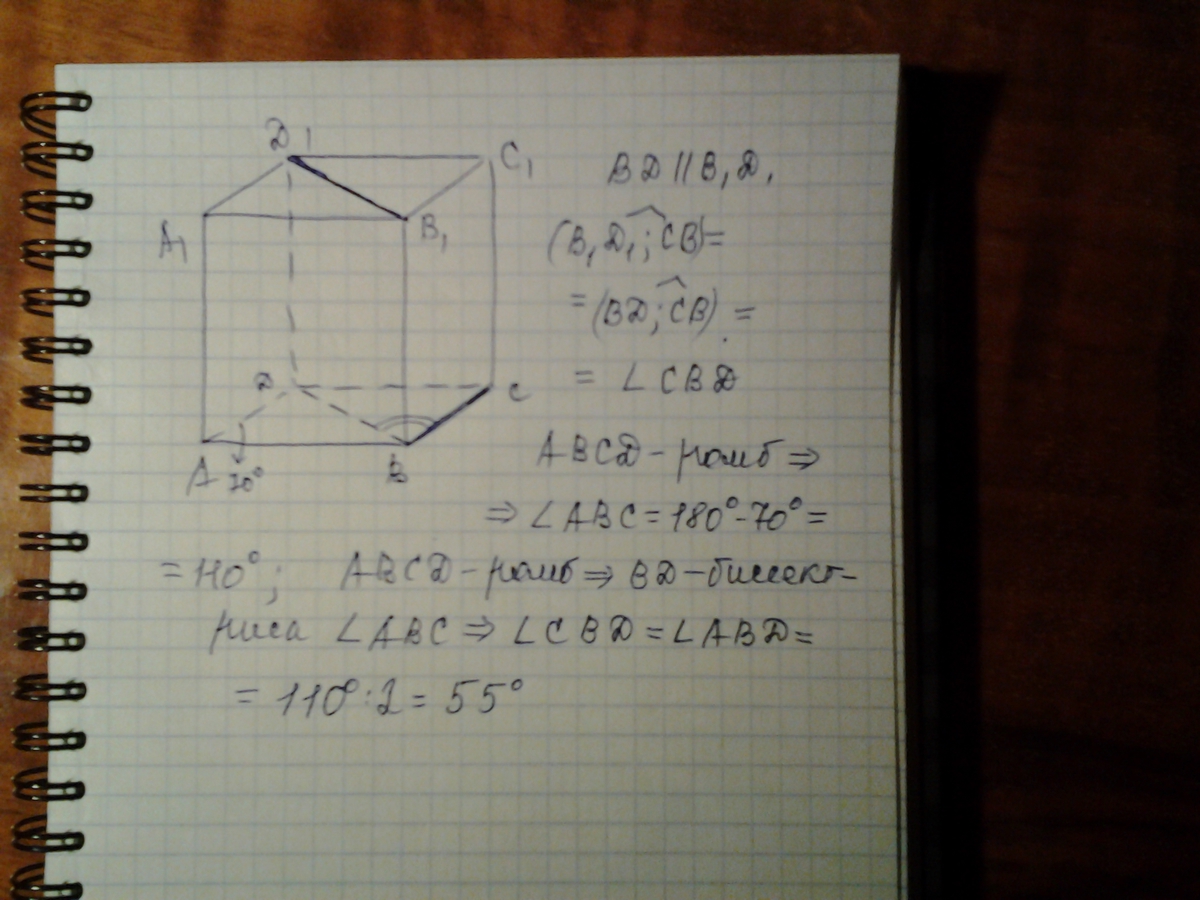 D1
C1
A1
B1
D
C
A 70°
B
BD || B1D1
(B1D1; CB) =
= (BD; CB) =
= ∠CBD
ABCD - ромб ⇒
⇒ ∠ABC = 180° - 70° =
= 110°; ABCD - ромб ⇒ BD - биссект-
риса ∠ABC ⇒ ∠CBD = ∠ABD =
= 110° : 2 = 55°